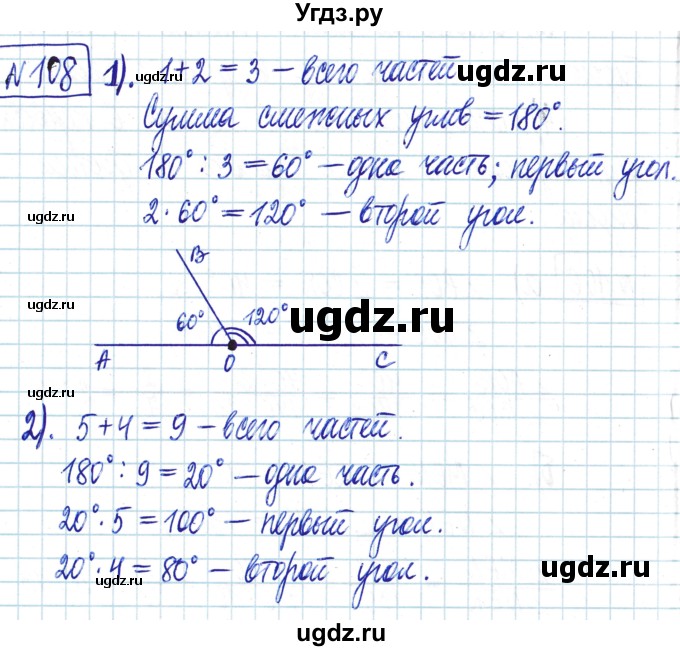 Угдз.ру
№108 1). 1+2=3 – всего частей
ugdz.ru
ugdz.ru
Сумма смежных углов = 180°.
180° : 3 = 60° – одна часть; первый угол.
ugdz.ru
2·60° = 120° – второй угол.
ugdz.ru
B
60° 120°
ugdz.ru
ugdz.ru
A O C
ugdz.ru
2). 5+4=9 – всего частей.
180° : 9 = 20° – одна часть.
ugdz.ru
20°·5 = 100° – первый угол.
20°·4 = 80° – второй угол.
ugdz.ru
ugdz.ru
ugdz.ru